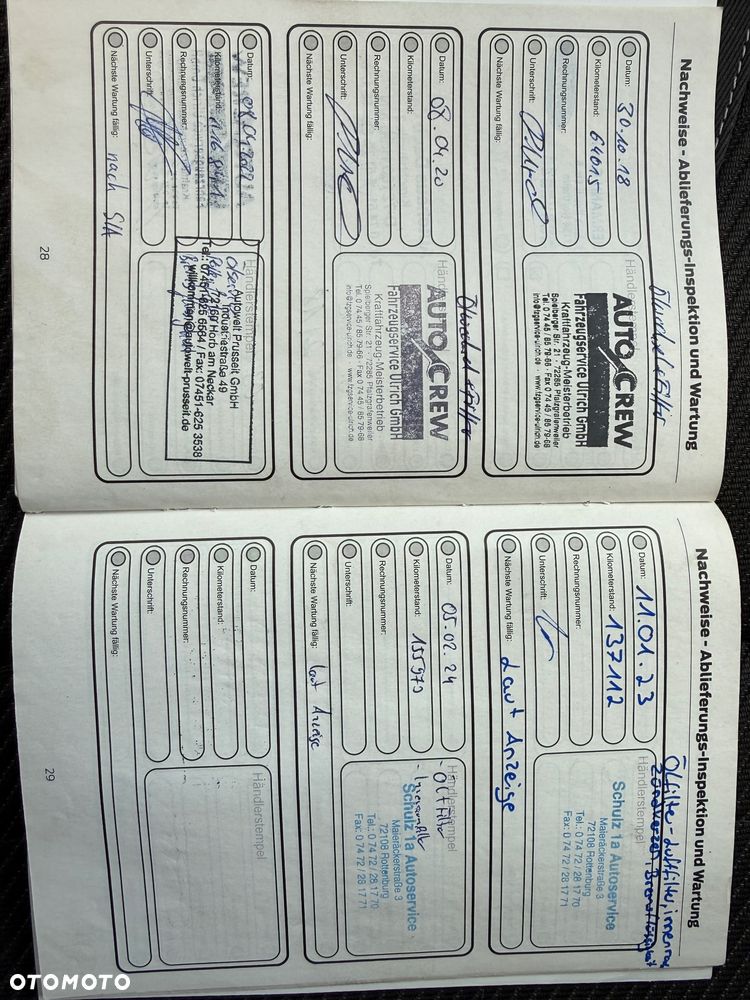 Nachweise - Ablieferungs-Inspektion und Wartung
Ölwechsel + Filter
Datum: 30.10.18
Kilometerstand: 64015
Rechnungsnummer:
Unterschrift:
Nächste Wartung fällig:
Händlerstempel
AUTO CREW
Fahrzeugservice Ulrich GmbH
Kraftfahrzeug-Meisterbetrieb
Spielberger Str. 21 · 72285 Pfalzgrafenweiler
Tel. 0 74 45 / 85 79-66 · Fax 0 74 45 / 85 79-68
info@fzgservice-ulrich.de · www.fzgservice-ulrich.de
Ölwechsel + Filter
Datum: 08.04.20
Kilometerstand:
Rechnungsnummer:
Unterschrift:
Nächste Wartung fällig:
Händlerstempel
AUTO CREW
Fahrzeugservice Ulrich GmbH
Kraftfahrzeug-Meisterbetrieb
Spielberger Str. 21 · 72285 Pfalzgrafenweiler
Tel. 0 74 45 / 85 79-66 · Fax 0 74 45 / 85 79-68
info@fzgservice-ulrich.de · www.fzgservice-ulrich.de
Datum:
Kilometerstand:
Rechnungsnummer:
Unterschrift:
Nächste Wartung fällig: nach S/A
Händlerstempel
Autowelt Prusseit GmbH
Industriestraße 49
72160 Horb am Neckar
Tel.: 07451-625 5564 / Fax: 07451-625 3538
willkommen@autowelt-prusseit.de
28
Nachweise - Ablieferungs-Inspektion und Wartung
Ölfilter - Luftfilter, innenraum
Zündkerzen, Bremsflüssigkeit
Datum: 11.01.23
Kilometerstand: 137112
Rechnungsnummer:
Unterschrift:
Nächste Wartung fällig: Laut Anzeige
Händlerstempel
Schulz 1a Autoservice
Maieräckerstraße 3
72108 Rottenburg
Tel.: 0 74 72 / 28 17 70
Fax: 0 74 72 / 28 17 71
Datum: 05.02.24
Kilometerstand: 155970
Rechnungsnummer:
Unterschrift:
Nächste Wartung fällig: laut Anzeige
Händlerstempel
- Ölfilter
- Innenraumfilter
Schulz 1a Autoservice
Maieräckerstraße 3
72108 Rottenburg
Tel.: 0 74 72 / 28 17 70
Fax: 0 74 72 / 28 17 71
Datum:
Kilometerstand:
Rechnungsnummer:
Unterschrift:
Nächste Wartung fällig:
Händlerstempel
29
OTOMOTO